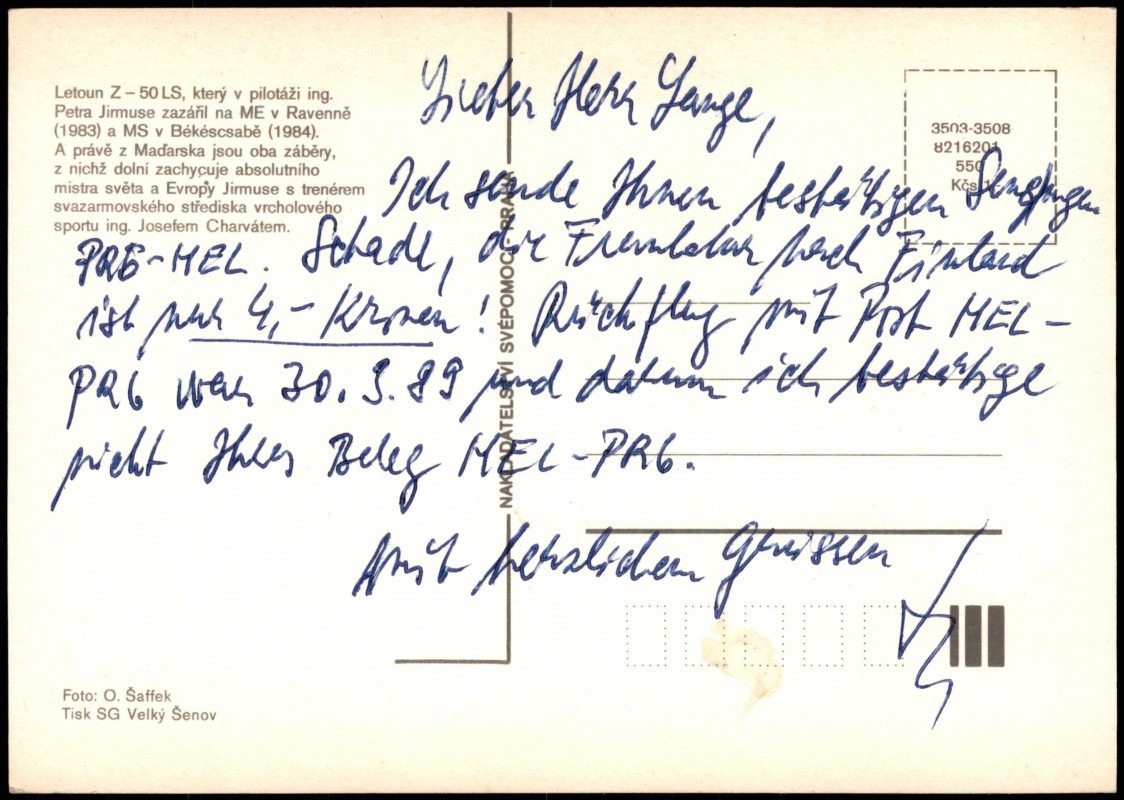 Letoun Z – 50 LS, který v pilotáži ing.
Petra Jirmuse zazářil na ME v Ravenně
(1983) a MS v Békéscsabě (1984).
A právě z Maďarska jsou oba záběry,
z nichž dolní zachycuje absolutního
mistra světa a Evropy Jirmuse s trenérem
svazarmovského střediska vrcholového
sportu ing. Josefem Charvátem.
NAKLADATELSTVÍ SVÉPOMOC, PRAHA
3503-3508
8216201
550
Kčs 1
Lieber Herr Lange,
Ich sende Ihnen bestätigen Sendungen
PRG-HEL. Schade, die Frankatur nach Finland
ist nur 4,- Kronen! Rückflug mit Post HEL-
PRG war 30.3.89 und darum ich bestätige
nicht Ihres Beleg HEL-PRG.
Mit herzlichen Grüssen
Foto: O. Šaffek
Tisk SG Velký Šenov